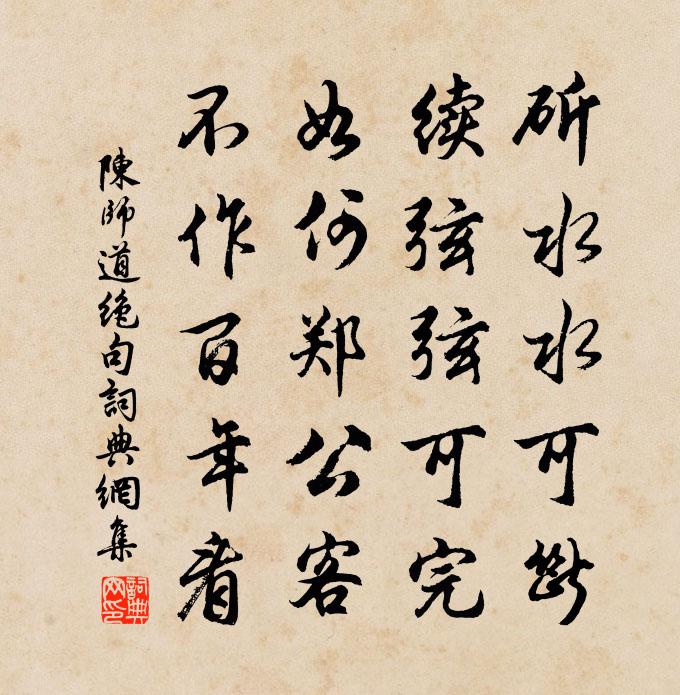 斫水水可断
续弦弦可完
如何郑公客
不作百年看
陳師道絶句詞典網集
詞典网印